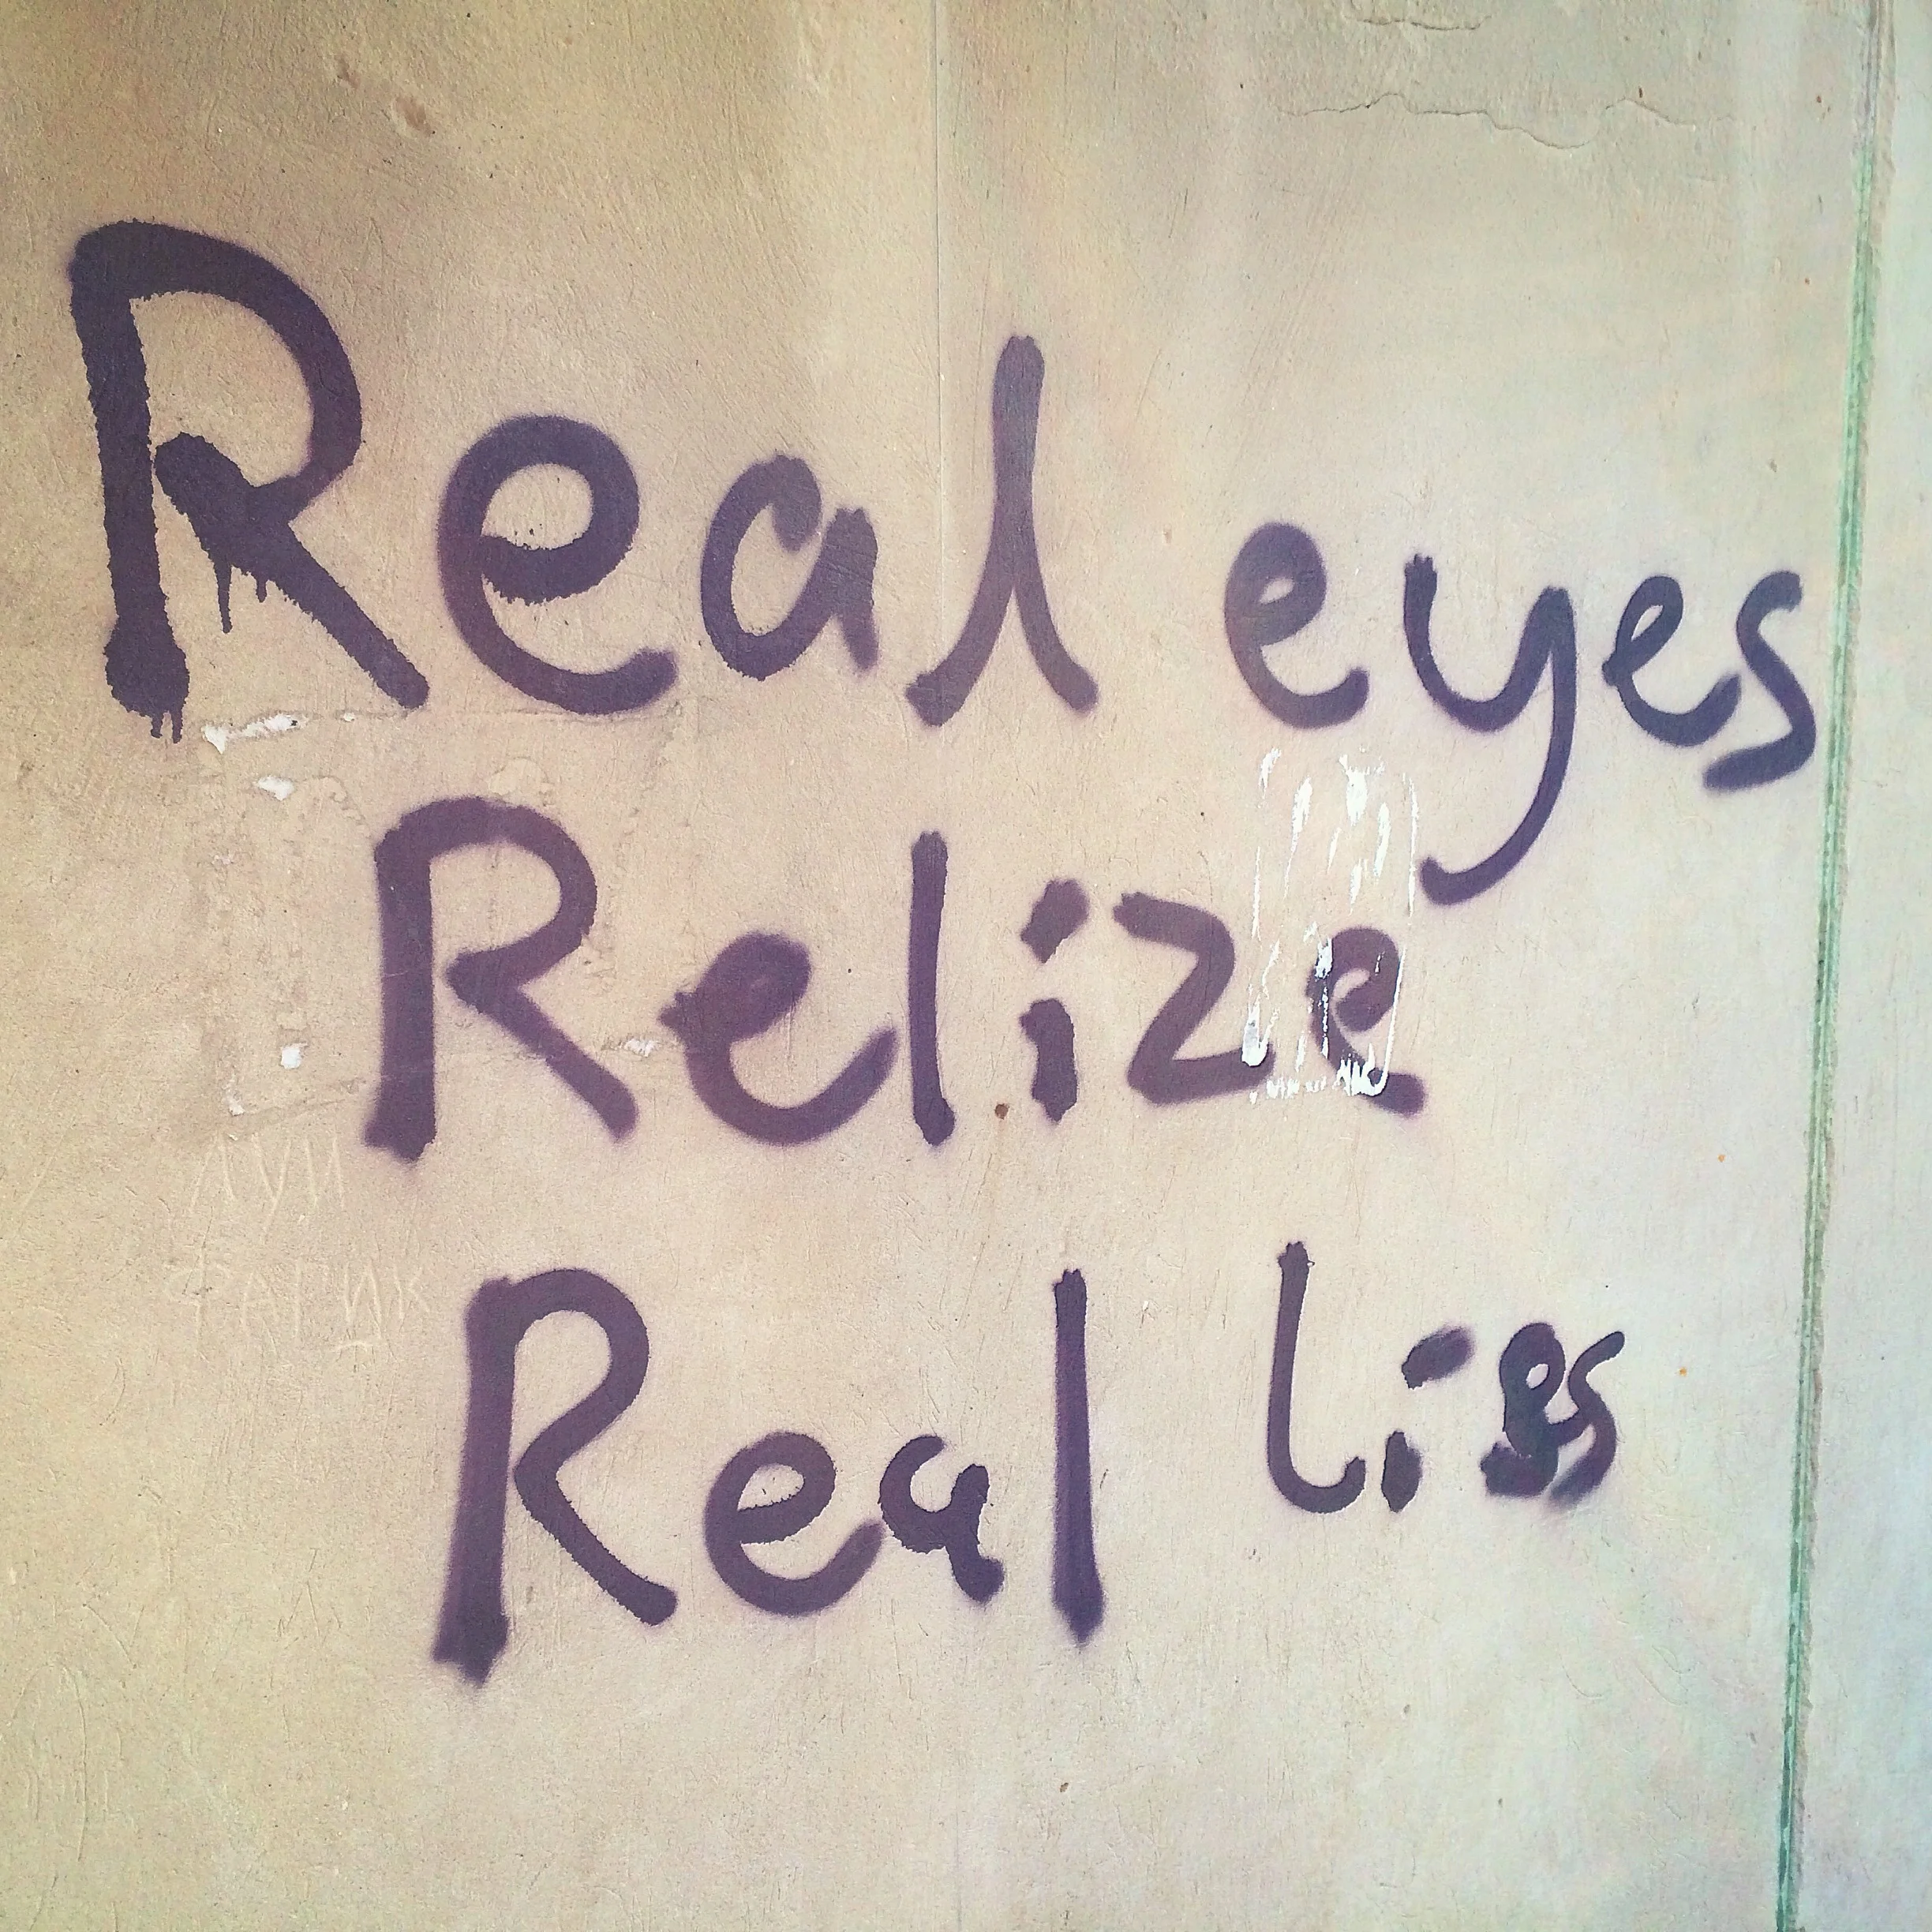 Real eyes
Relize
Real lies
ЛУИ
ФАГИК